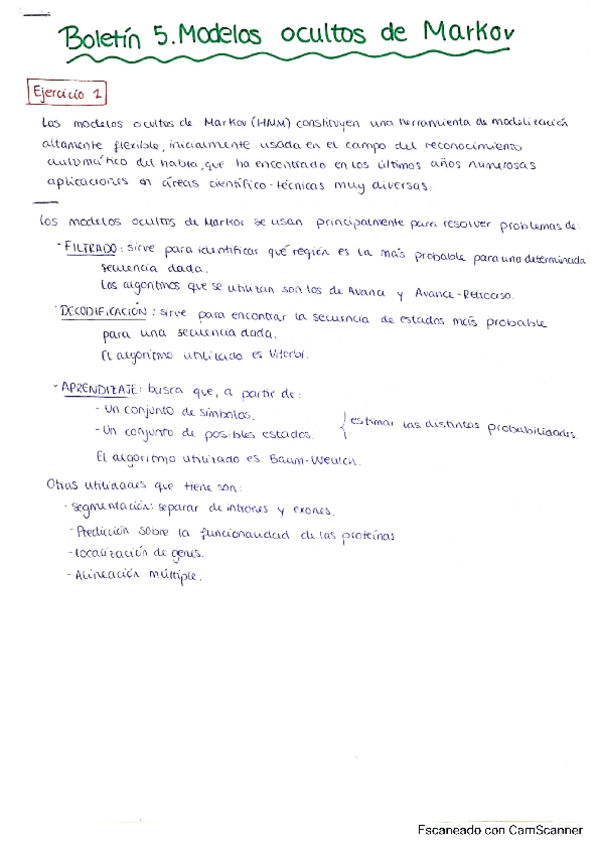 Boletín 5. Modelos ocultos de Markov
Ejercicio 1
Los modelos ocultos de Markov (HMM) constituyen una herramienta de modelización
altamente flexible, inicialmente usada en el campo del reconocimiento
automático del habla, que ha encontrado en los últimos años numerosas
aplicaciones en áreas científico-técnicas muy diversas.
Los modelos ocultos de Markov se usan principalmente para resolver problemas de:
- FILTRADO: sirve para identificar qué región es la más probable para una determinada
secuencia dada.
Los algoritmos que se utilizan son los de Avance y Avance-Retroceso.
- DECODIFICACIÓN: sirve para encontrar la secuencia de estados más probable
para una secuencia dada.
El algoritmo utilizado es Viterbi.
- APRENDIZAJE: busca que, a partir de:
- Un conjunto de símbolos.
- Un conjunto de posibles estados.
{ estimar las distintas probabilidades.
El algoritmo utilizado es Baum-Welch.
Otras utilidades que tiene son:
- Segmentación: separar de intrones y exones.
- Predicción sobre la funcionalidad de las proteínas
- Localización de genes.
- Alineación múltiple.
Escaneado con CamScanner